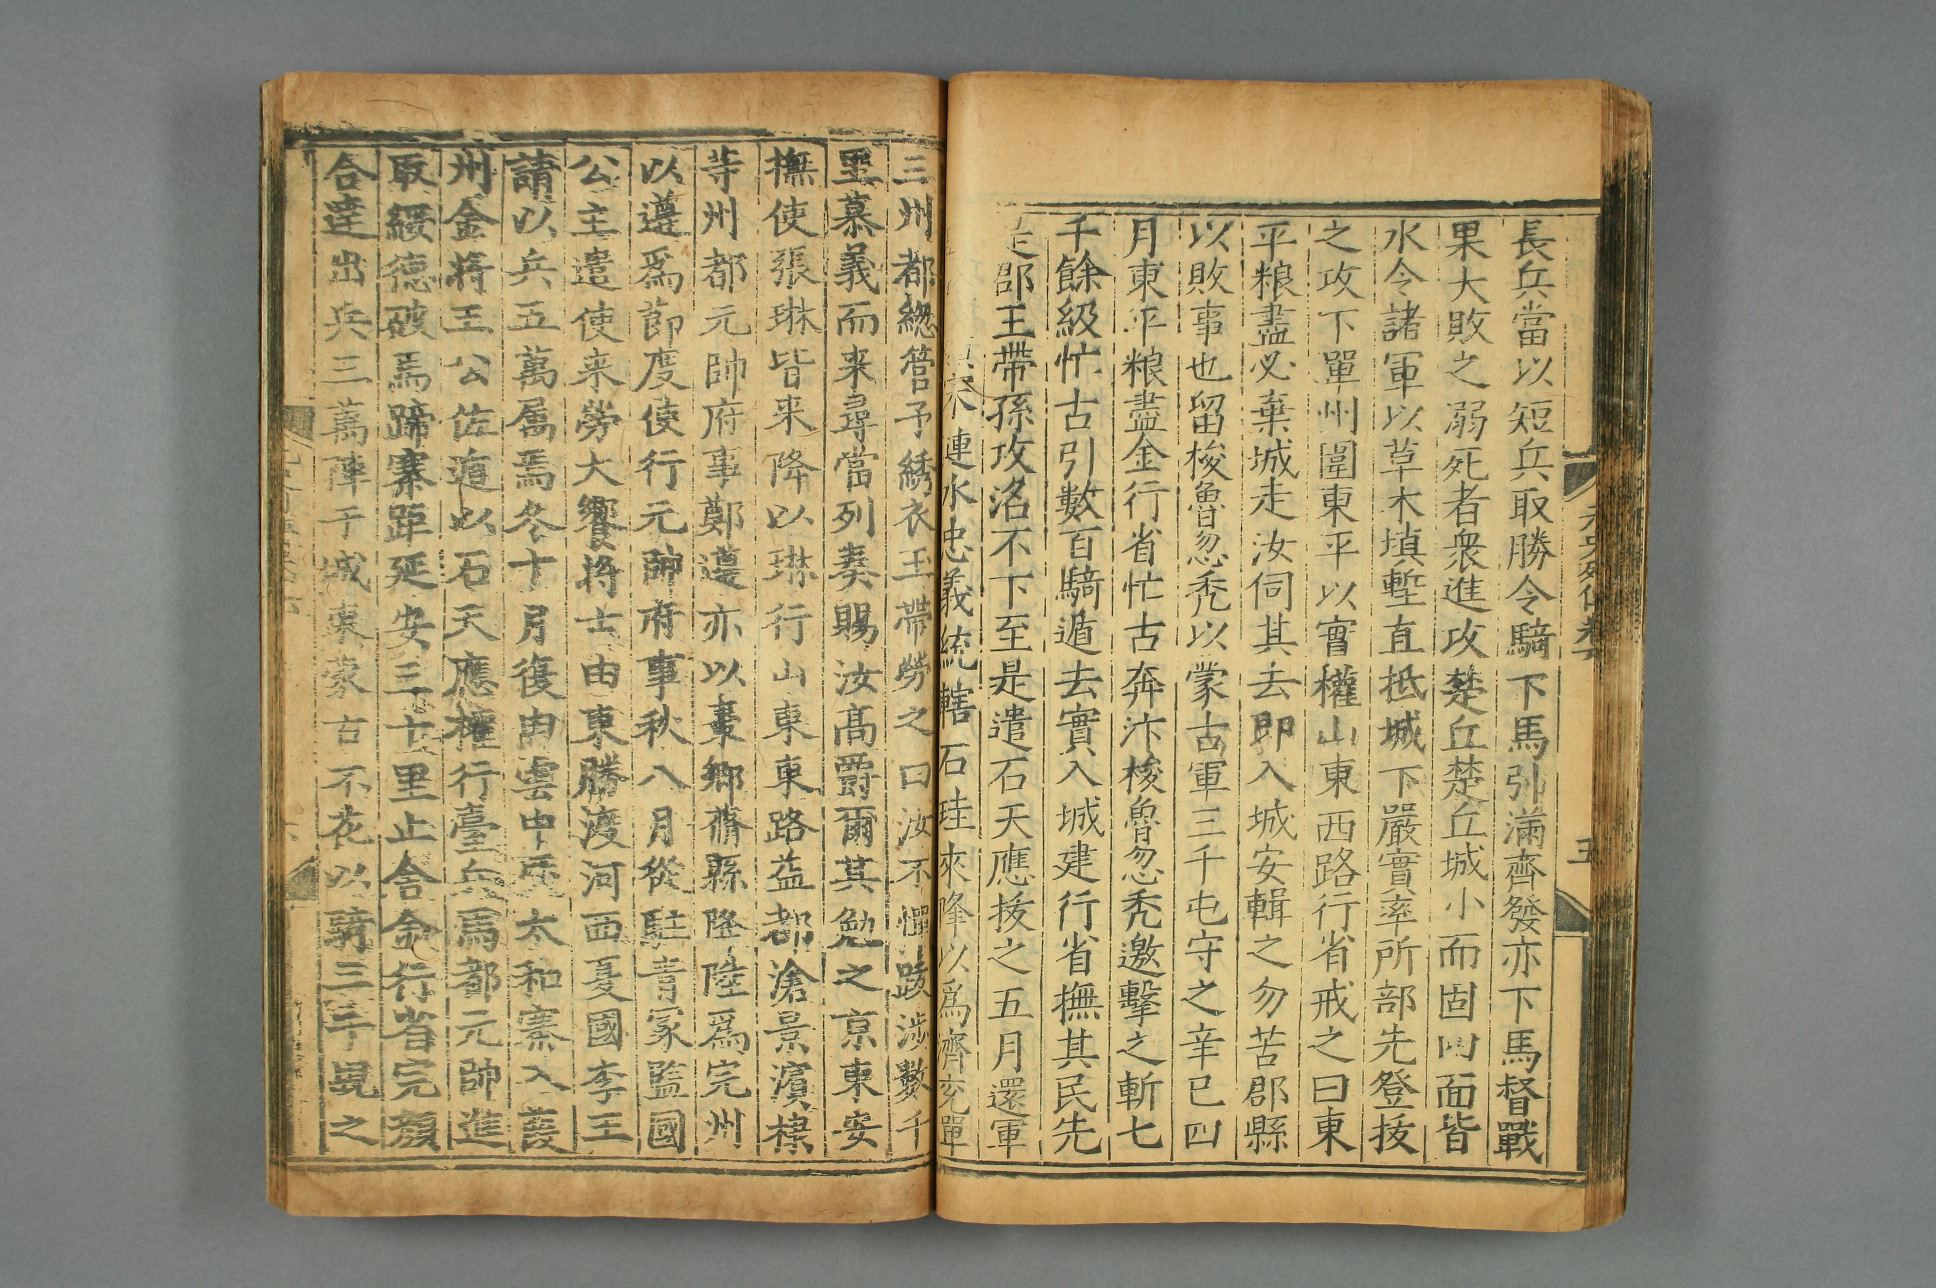 長兵當以短兵取勝令騎下馬引滿齊發亦下馬督戰
果大敗之溺死者衆進攻楚丘楚丘城小而固四面皆
水令諸軍以草木填塹直抵城下嚴實率所部先登拔
之攻下單州圍東平以實權山東西路行省戒之曰東
平粮盡必棄城走汝伺其去即入城安輯之勿苦郡縣
以敗事也留梭魯忽禿以蒙古軍三千屯守之辛巳四
月東平粮盡金行省忙古奔汴梭魯忽禿邀擊之斬七
千餘級忙古引數百騎遁去實入城建行省撫其民先
是郡王帶孫攻洺不下至是遣石天應拔之五月還軍
漣水忠義統轄石珪來降以爲濟兖單
三州都緫管予綉衣玉帶勞之曰汝不憚跋涉數千
里慕義而来尋當列奏賜汝高爵爾其勉之京東安
撫使張琳皆来降以琳行山東東路益都滄景濱棣
等州都元帥府事鄭遵亦以棗鄉蓨縣降陞爲完州
以遵爲節度使行元帥府事秋八月從駐青冢監國
公主遣使来勞大饗將士由東勝渡河西夏國李王
請以兵五萬属焉冬十月復由雲中歷太和寨入葭
州金將王公佐遁以石天應權行臺兵馬都元帥進
取綏德破馬蹄寨距延安三十里止舍金行省完顔
合達出兵三萬陣于城東蒙古不花以騎三千覘之
元史列傳卷六
五